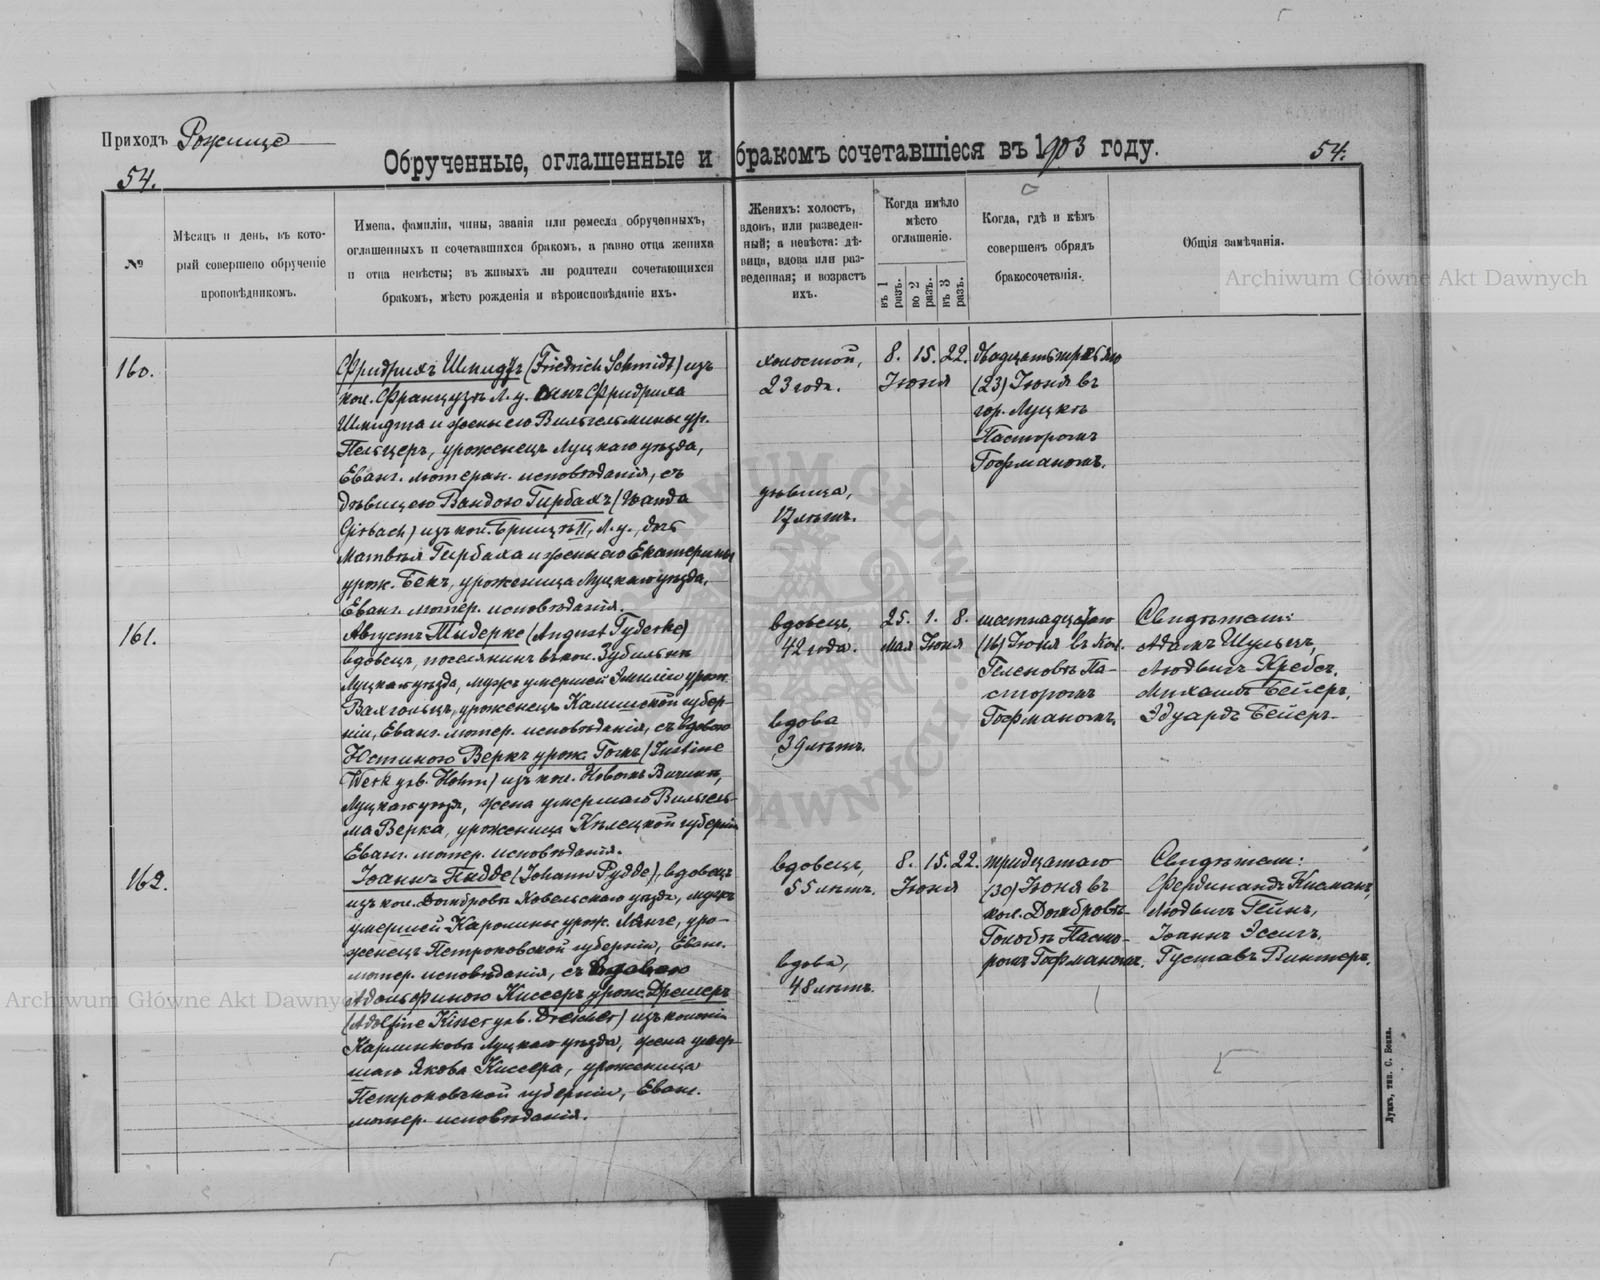 Приходъ Рожище
Обрученные, оглашенные и бракомъ сочетавшіеся въ 1903 году.
54.
54.
№
Мѣсяцъ и день, въ кото-
рый совершено обрученіе
проповѣдникомъ.
Имена, фамиліи, чины, званія или ремесла обрученныхъ,
оглашенныхъ и сочетавшихся бракомъ, а равно отца жениха
и отца невѣсты; въ живыхъ ли родители сочетающихся
бракомъ, мѣсто рожденія и вѣроисповѣданіе ихъ.
Женихъ: холостъ,
вдовъ, или разведен-
ный; а невѣста: дѣ-
вица, вдова или раз-
веденная; и возрастъ
ихъ.
Когда имѣло
мѣсто
оглашеніе.
въ 1
разъ.
во 2
разъ.
въ 3
разъ.
Когда, гдѣ и кѣмъ
совершенъ обрядъ
бракосочетанія.
Общія замѣчанія.
Archiwum Główne Akt Dawnych
160.
Фридрихъ Шмидтъ (Friedrich Schmidt) изъ
кол. Французъ Л. у. сынъ Фридриха
Шмидта и жены его Вильгельмины ур.
Пельцеръ, уроженецъ Луцкаго уѣзда,
Еванг. лютеран. исповѣданія, съ
дѣвицею Вандою Гирбахъ (Wanda
Girbach) изъ кол. Брищъ II, Л. у., дочь
Матвѣя Гирбаха и жены его Екатерины
урож. Бекъ, уроженица Луцкаго уѣзда,
Еванг. лютер. исповѣданія.
холостой,
23 года.
дѣвица,
17 лѣтъ.
8. 15. 22.
Іюня
двадцать третьяго
(23) Іюня въ
гор. Луцкѣ
Пасторомъ
Гофманомъ.
161.
Августъ Тыдерке (August Tyderke)
вдовецъ, поселянинъ въ кол. Зубильни
Луцкаго уѣзда, мужъ умершей Эмиліи урож.
Вахгольцъ, уроженецъ Калишской губер-
ніи, Еванг. лютер. исповѣданія, съ вдовою
Юстиною Веркъ урож. Гомъ (Justine
Werk geb. Hohm) изъ кол. Новомъ
Луцкаго уѣзда, жена умершаго Вильгель-
ма Верка, уроженица Кѣлецкой губерніи
Еванг. лютер. исповѣданія.
вдовецъ,
42 года.
вдова
39 лѣтъ.
25. 1. 8.
Мая Іюня
шестнадцатаго
(16) Іюня въ кол.
Геленовъ Па-
сторомъ
Гофманомъ.
Свидѣтели:
Адамъ Шульцъ,
Людвигъ Кребсъ,
Михаилъ Бейеръ,
Эдуардъ Бейеръ.
162.
Іоаннъ Пидде (Johann Pydde), вдовецъ
изъ кол. Домбровъ Ковельскаго уѣзда, мужъ
умершей Каролины урож. Манге, уро-
женецъ Петроковской губерніи, Еванг.
лютер. исповѣданія, съ вдовою
Адольфиною Киссеръ урож. Дрешеръ
(Adolfine Kisser geb. Drescher) изъ колоніи
Карлинковъ Луцкаго уѣзда, жена умер-
шаго Якова Киссера, уроженица
Петроковской губерніи, Еванг.
лютер. исповѣданія.
вдовецъ,
55 лѣтъ.
вдова,
48 лѣтъ.
8. 15. 22.
Іюня
тридцатаго
(30) Іюня въ
кол. Домбровъ-
Голобъ Пасто-
ромъ Гофманомъ.
Свидѣтели:
Фердинандъ Кисманъ,
Людвигъ Гейнъ,
Іоаннъ Эссигъ,
Густавъ Винтеръ.
Archiwum Główne Akt Dawnych
Луцкъ, тип. С. Бокка.